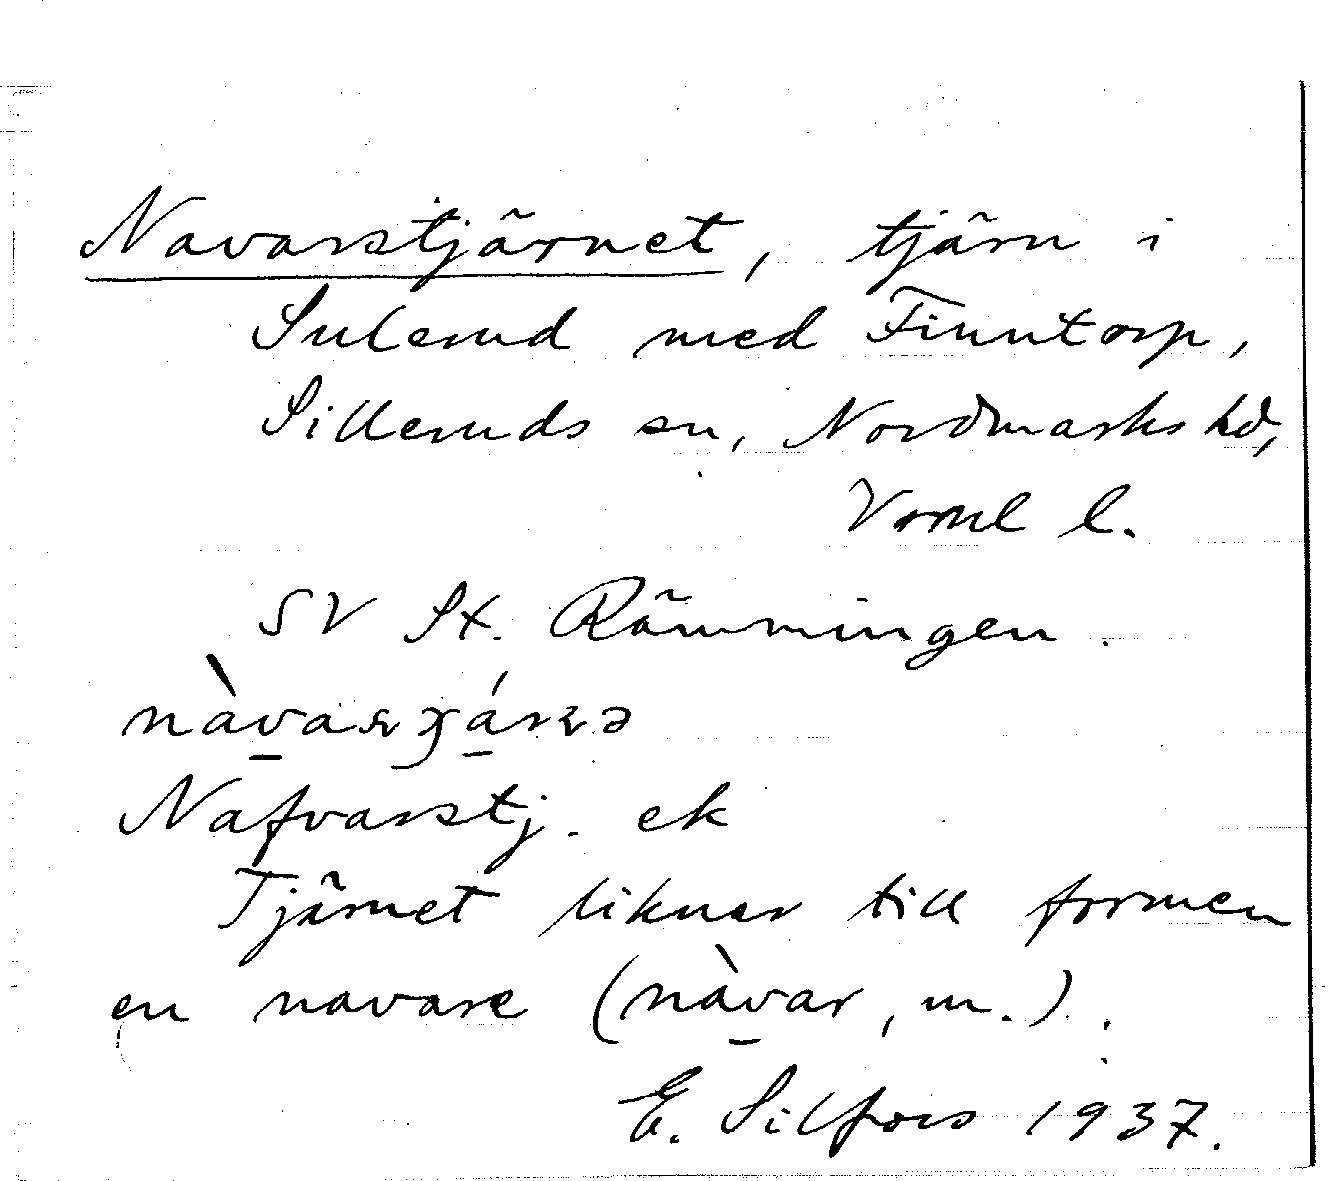 Navarstjärnet, tjärn i
Sulerud med Finntorp,
Silleruds sn, Nordmarks hd,
Vrml l.
SV St. Rämmingen.
Nafvarstj. ek
Tjärnet liknar till formen
en navare (nàvar, m.).
E. Silfors 1937.